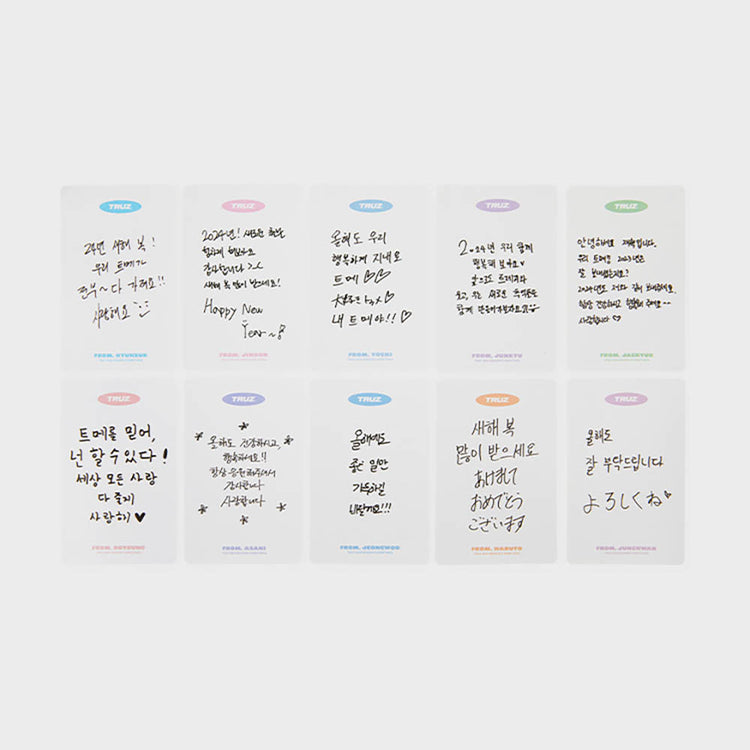 TRUZ
24년 새해 복!
우리 트메가
전부~다 가져요!!
사랑해요
FROM. HYUNSUK
TRUZ
2024년! 새로운
힘차게
감사합니다 >.<
새해 복 많이 받으세요!
Happy New
Year~
FROM. JIHOON
TRUZ
올해도 우리
행복하게 지내요
트메 ♡♡
내 트메야!! ♡
FROM. YOSHI
TRUZ
2024년 우리 함께
행복해 보아요
앞으로도 트메와
쌓고, 또는 새로운 추억들을
함께 만들어가보자요
FROM. JUNKYU
TRUZ
안녕하세요 재혁입니다.
우리 트메 2023년은
잘 보내셨는지요?
2024년도 저와 같이 보내주세요.
항상 건강하고 행복해 주세요~
사랑합니다 ♡
FROM. JAEHYUK
TRUZ
트메를 믿어,
넌 할 수 있다!
세상 모든 사랑
다 줄게
사랑해 ♥
FROM. DOYOUNG
TRUZ
올해도 건강하시고,
행복하세요!!
항상 응원해주셔서
감사합니다
사랑합니다
FROM. ASAHI
TRUZ
올해에도
좋은 일만
가득하길
바랄게요!!!
FROM. JEONGWOO
TRUZ
새해 복
많이 받으세요
あけまして
おめでとう
ございます
FROM. HARUTO
TRUZ
올해도
잘 부탁드립니다
よろしくね
FROM. JUNGHWAN